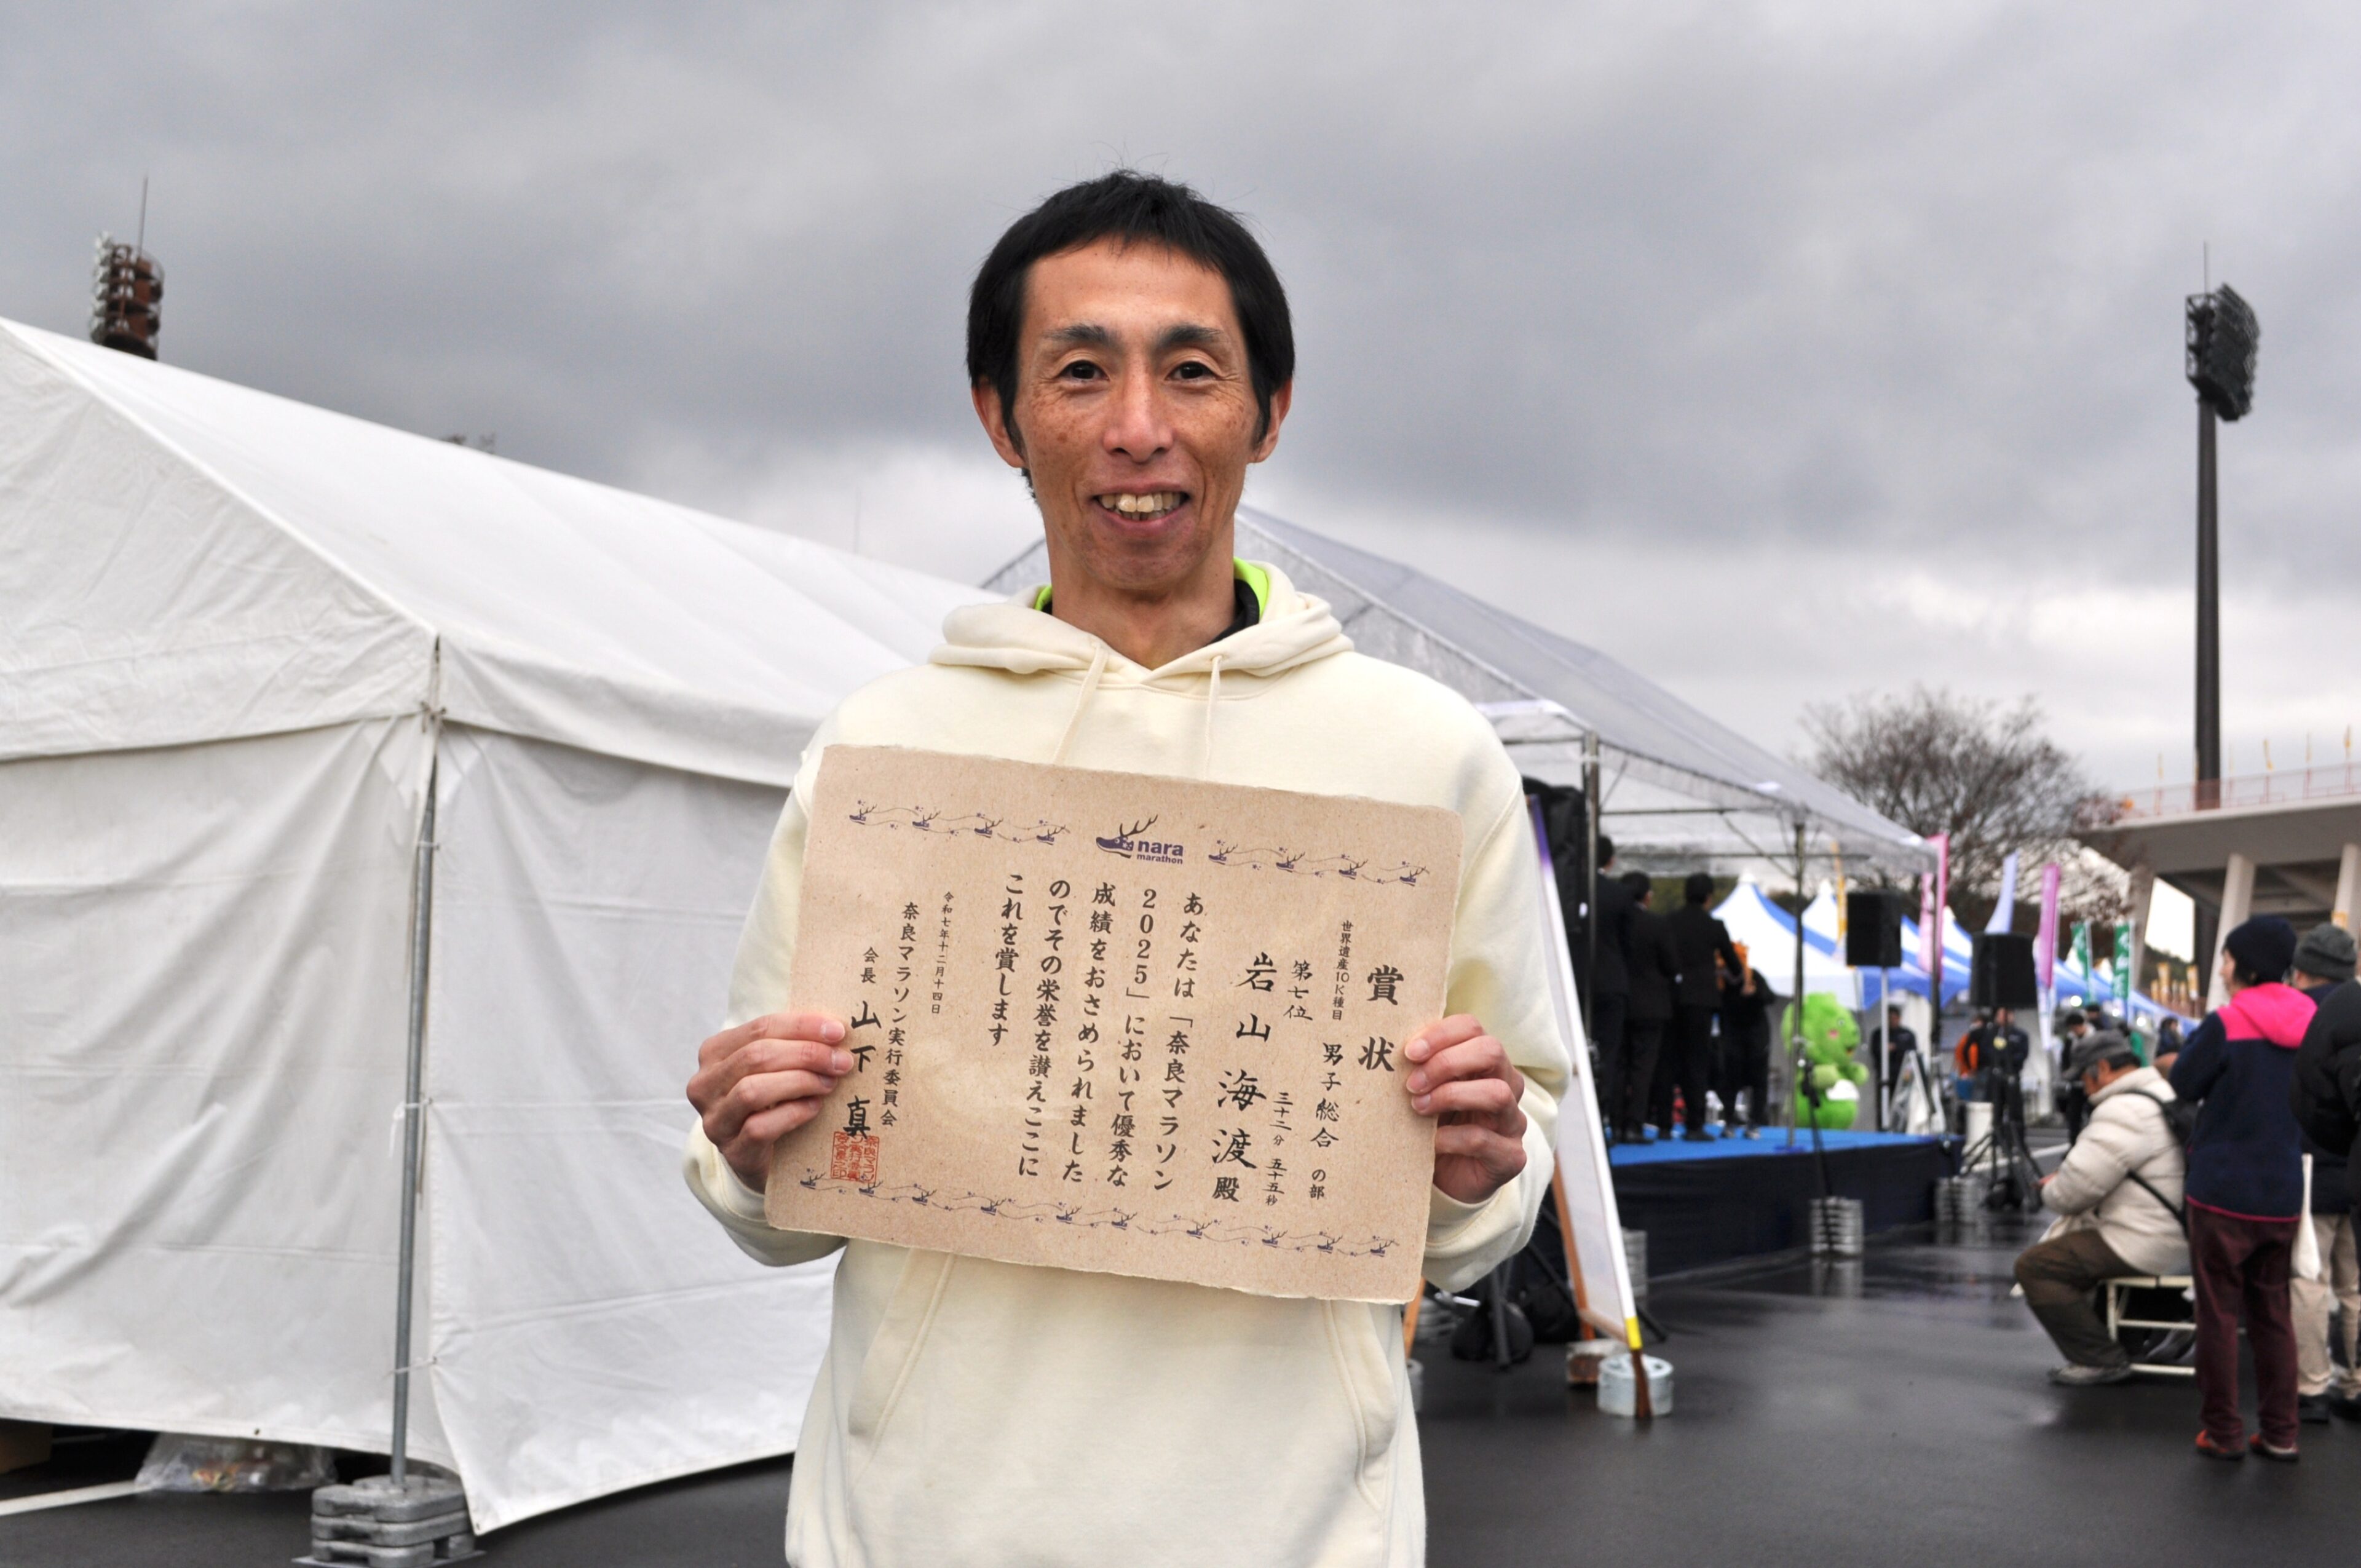 nara
marathon
賞状
世界遺産10K種目 男子総合の部
第七位 三十二分 五十五秒
岩山 海渡 殿
あなたは「奈良マラソン
2025」において優秀な
成績をおさめられました
のでその栄誉を讃えここに
これを賞します
令和七年十二月十四日
奈良マラソン実行委員会
会長 山下 真